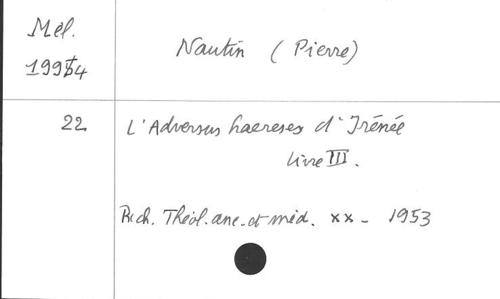 Mél.
19954
Nautin (Pierre)
22
L'Adversus haereses d'Irénée
livre III.
Rech. Théol. anc. et méd. XX - 1953